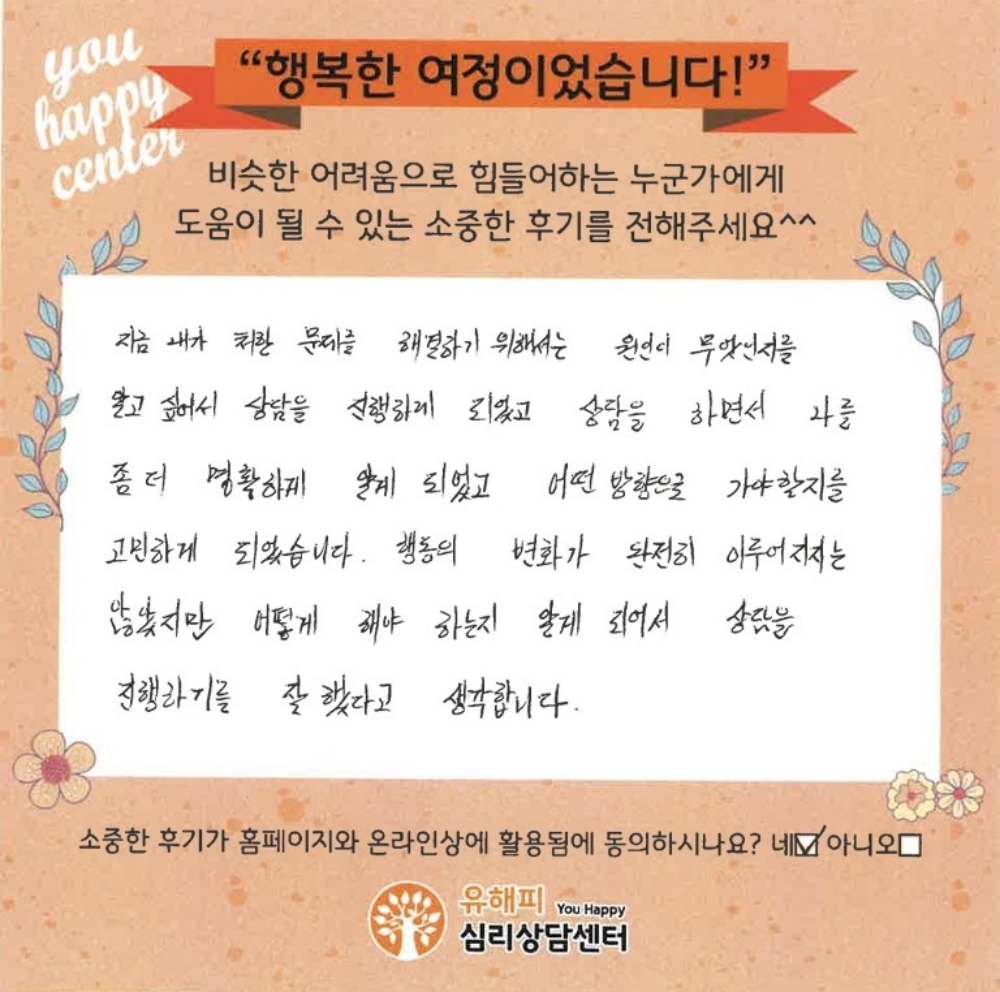 you
happy
center
“행복한 여정이었습니다!”
비슷한 어려움으로 힘들어하는 누군가에게
도움이 될 수 있는 소중한 후기를 전해주세요^^
지금 내가 처한 문제를 해결하기 위해서는 원인이 무엇인지를
알고 싶어서 상담을 진행하게 되었고 상담을 하면서 나를
좀 더 명확하게 알게 되었고 어떤 방향으로 가야할지를
고민하게 되었습니다. 행동의 변화가 완전히 이루어지지는
않았지만 어떻게 해야 하는지 알게 되어서 상담을
진행하기를 잘 했다고 생각합니다.
소중한 후기가 홈페이지와 온라인상에 활용됨에 동의하시나요? 네☑ 아니오☐
유해피 You Happy
심리상담센터